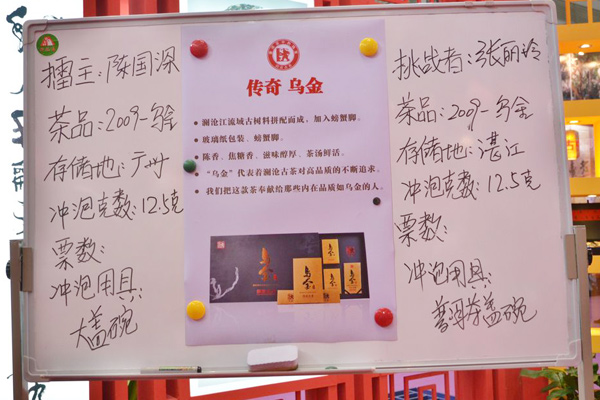 擂主：陈国深
茶品：2009-乌金
存储地：广州
冲泡克数：12.5克
票数：
冲泡用具：
大盖碗
传奇 乌金
澜沧江流域古树料拼配而成，加入螃蟹脚。
玻璃纸包装、螃蟹脚。
陈香、焦糖香、滋味醇厚、茶汤鲜活。
“乌金”代表着澜沧古茶对高品质的不断追求。
我们把这款茶奉献给那些内在品质如乌金的人。
乌金
挑战者：张丽玲
茶品：2009-乌金
存储地：湛江
冲泡克数：12.5克
票数：
冲泡用具：
盖碗